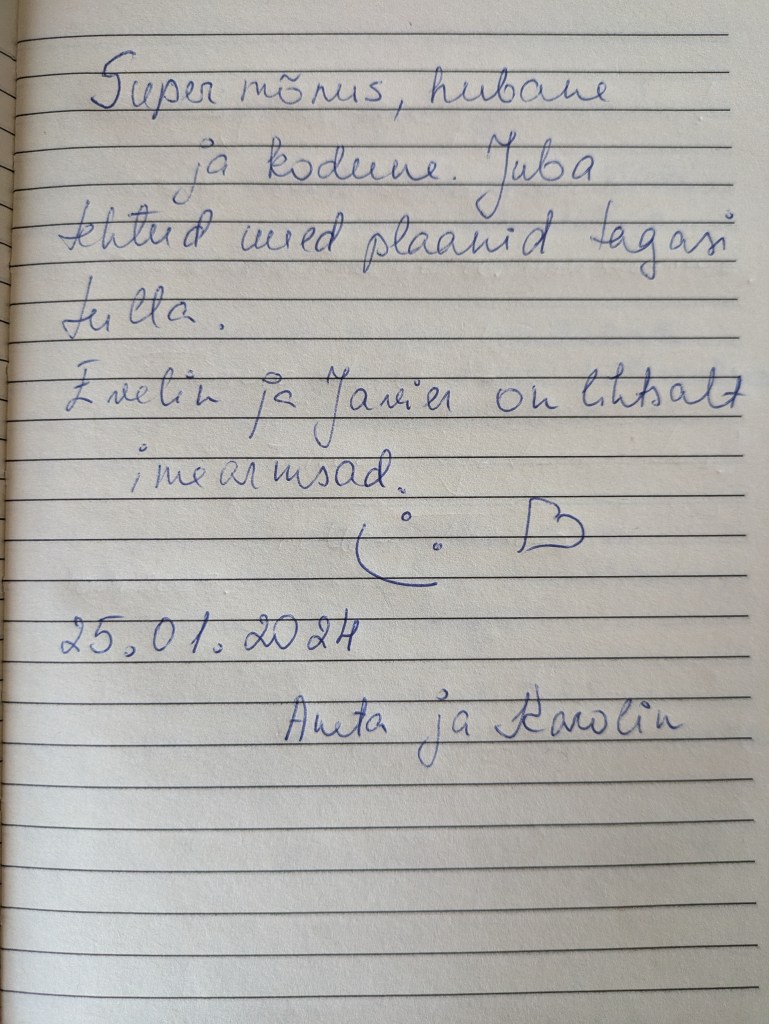 Super mõnus, hubane
ja kodune. Juba
tehtud uued plaanid tagasi
tulla.
Evelin ja Javier on lihtsalt
imearmsad.
25.01.2024
Aneta ja Karolin